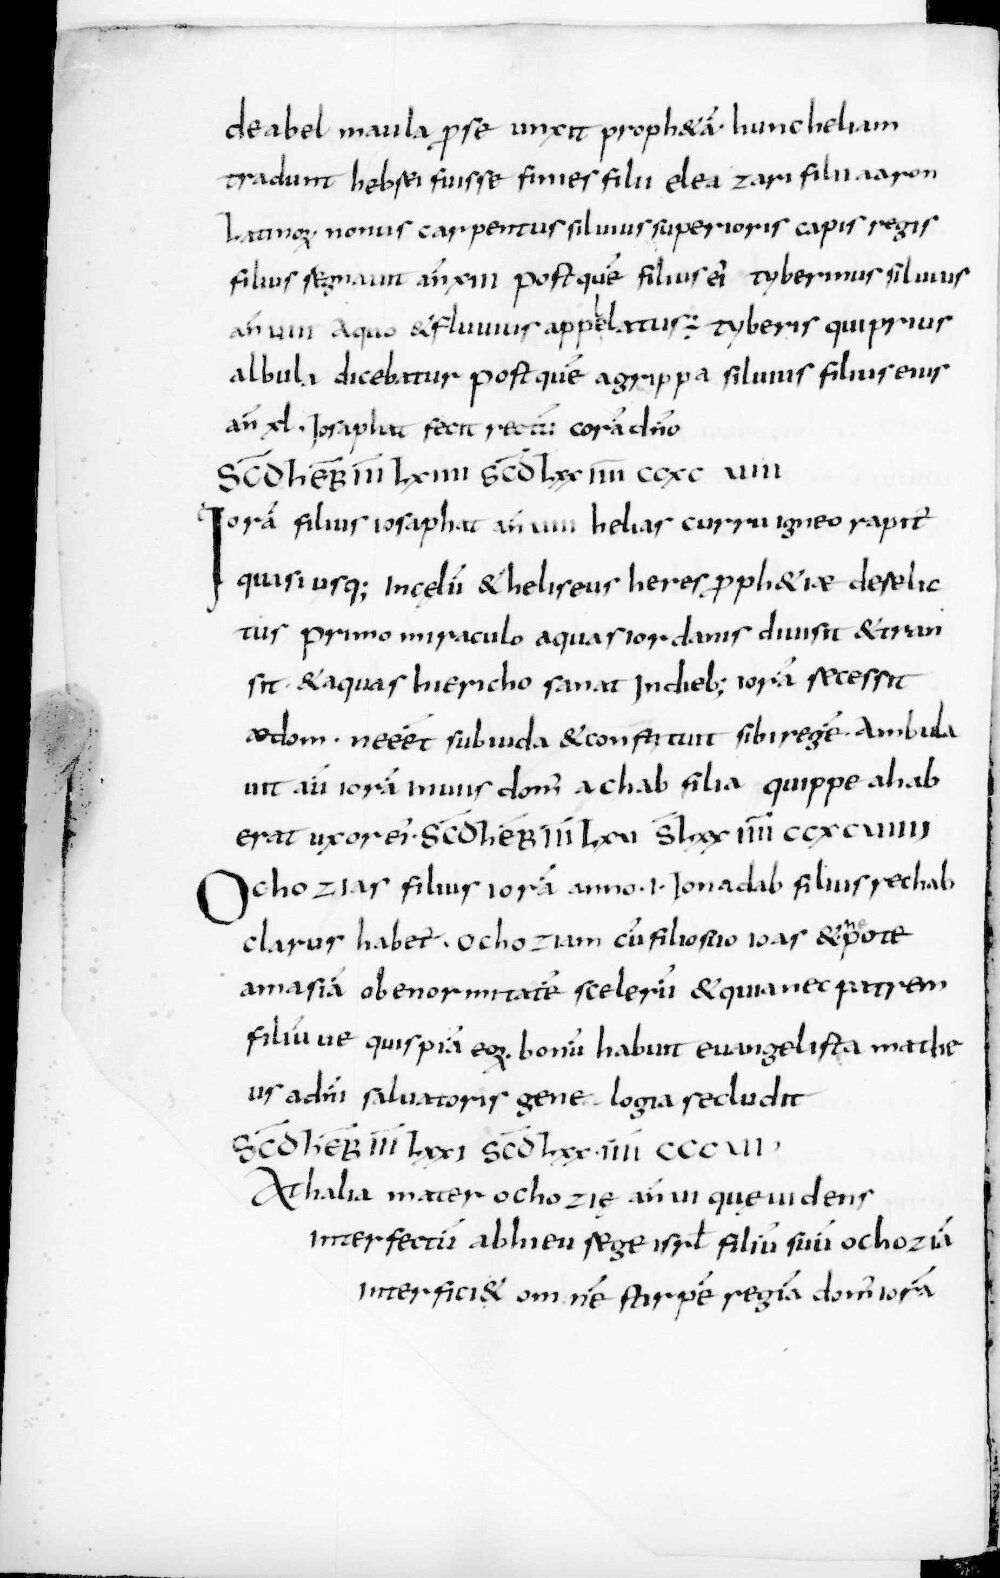 de abel maula ꝓse unxit proph&ā· hunc heliam
tradunt hebrei fuisse finies filii elea zari filii aaron
Latinoꝝ· nonus carpentus siluius superioris capis regis
filius regnauit añ xiii postquē filius ei' tyberinus siluius
añ uiii Aquo &fluuius appellatus: tyberis qui prius
albula dicebatur postquē agrippa siluius filius eius
añ xl · Iosaphat fecit rectū corā dño
SCD HEB III Lxiiii SCD Lxx IIII CCXC uiii
Iorā filius iosaphat añ uiii helias curru igneo rapit̃
quasi usq; In cęlū & heliseus heres ꝓph&iæ derelic
tus primo miraculo aquas iordanis diuisit & tran
siit· & aquas hiericho sanat In dieb; iorā recessit
ædom · ne eēt sub iuda & constituit sibi regē· Ambula
uit aū iorā in uiis dom' achab filia quippe ahab
erat uxor ei'· SCD HEB III Lxui S Lxx IIII CCXCuiiii
Ochozias filius iorā anno · I · Ionadab filius rechab
clarus habet̃ · ochoziam cū filio suo ioas & nepote
amasiā ob enormitatē scelerū & quia nec patrem
filiū ue quispiā eoꝝ· bonū habuit euangelista mathe
us a dñi saluatoris gene logia secludit
SCD HEB III Lxxi SCD Lxx · IIII CCCuii ·
Athalia mater ochozię añ ui quę uidens
interfectū ab hieu rege isrł filiū suū ochoziā
interfici& omnē stirpē regiā dom' iorā